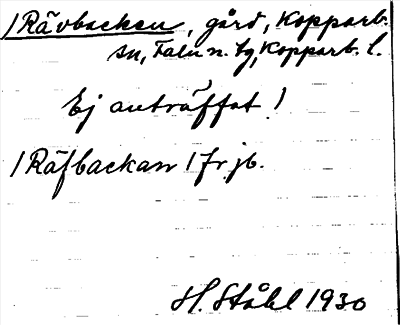 /Rävbacken, gård, Kopparb.
sn, Falu n. tg, Kopparb. l.
Ej anträffat!
/Räfbackan / fr. jb.
H. Ståhl 1930